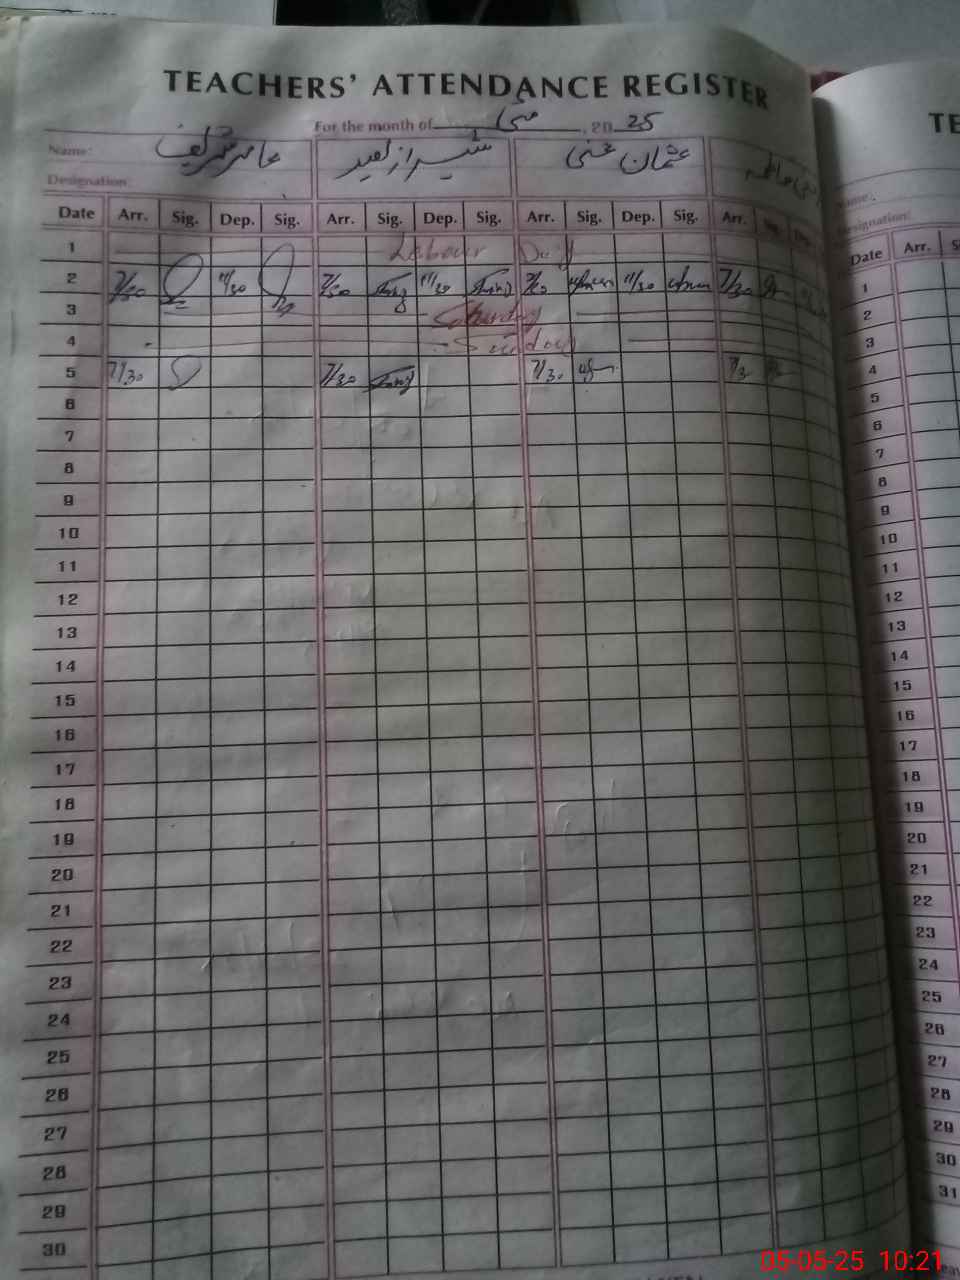 TEACHERS' ATTENDANCE REGISTER
For the month of مئی, 2025
Name: عامر شریف شیراز سعید عثمان غنی
Designation:
Date Arr. Sig. Dep. Sig. Arr. Sig. Dep. Sig. Arr. Sig. Dep. Sig. Arr. Sig. Dep.
1 Labour Day
2 7/30 11/30 7/30 11/30 7/30 11/30 7/30
3 Saturday
4 Sunday
5 7/30 7/30 7/30 7/3
6
7
8
9
10
11
12
13
14
15
16
17
18
19
20
21
22
23
24
25
26
27
28
29
30
TE
Name:
Designation:
Date Arr. S
1
2
3
4
5
6
7
8
9
10
11
12
13
14
15
16
17
18
19
20
21
22
23
24
25
26
27
28
29
30
31
05-05-25 10:21